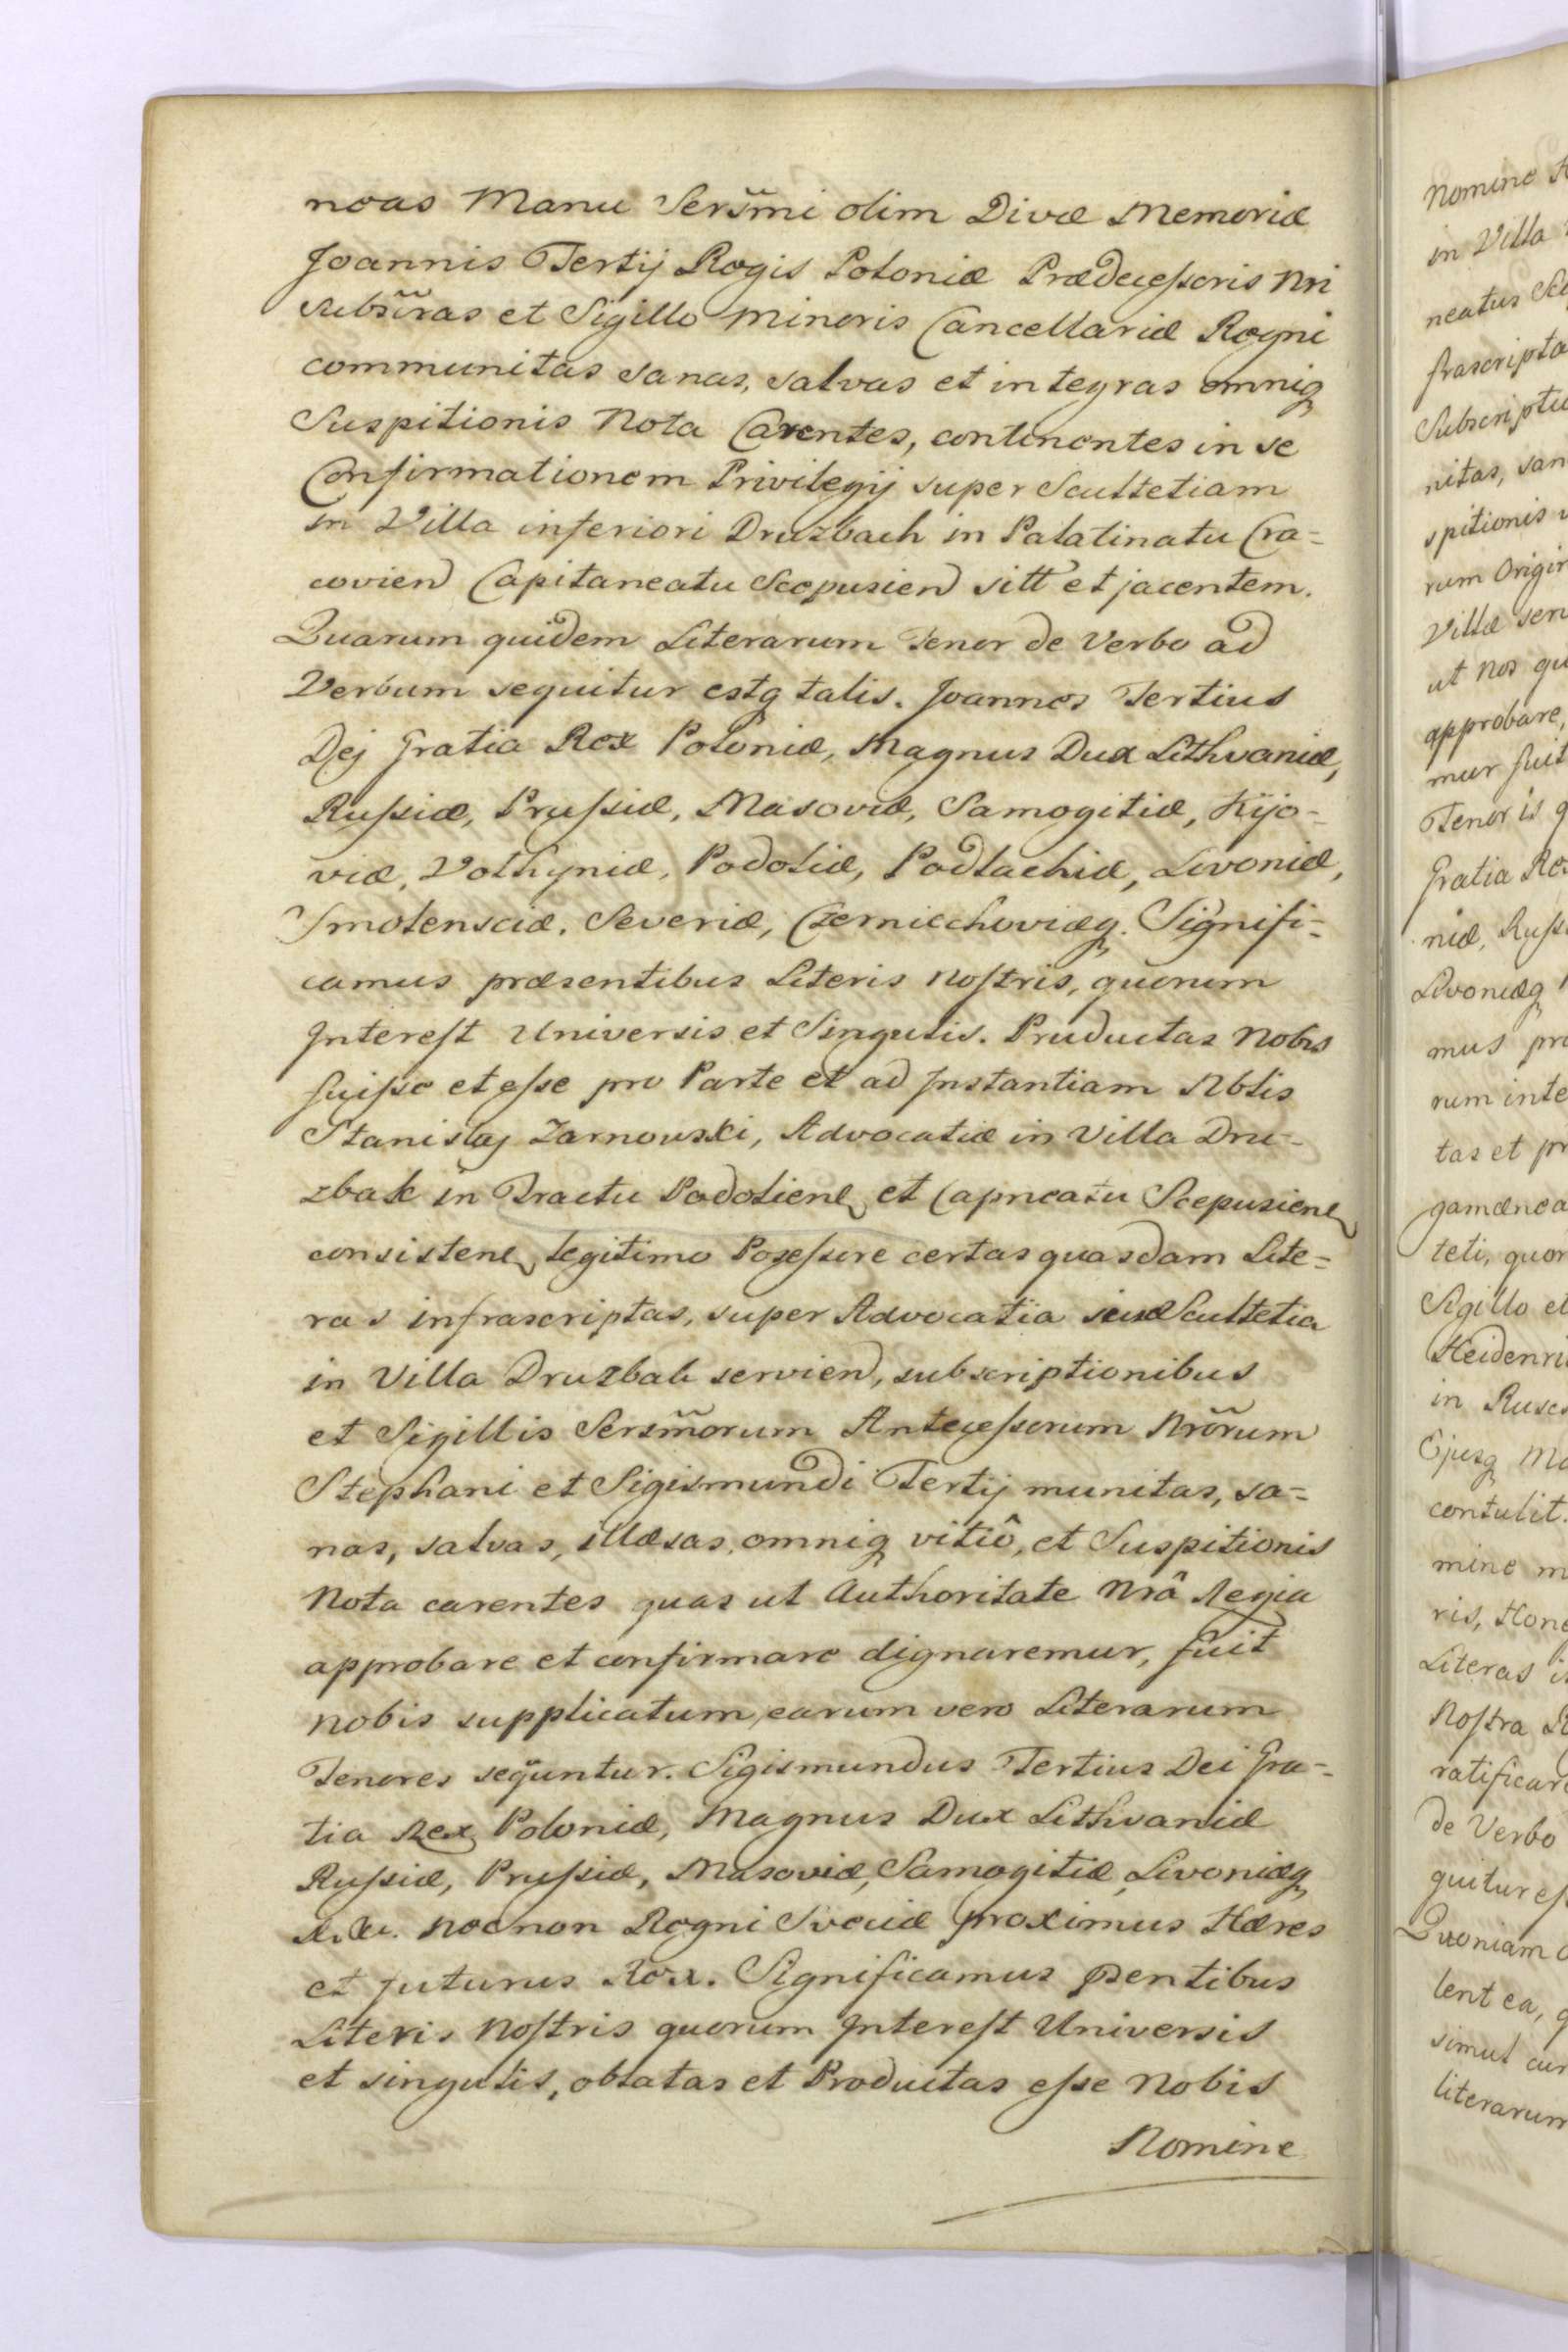 neas Manu Sersm̃i olim Divæ Memoriæ
Joannis Tertij Regis Poloniæ Prædecessoris Nri
subsc̃ras et Sigillo Minoris Cancellariæ Regni
communitas sanas, salvas et integras omniq
Suspitionis Nota Carentes, continentes in se
Confirmationem Privilegij super Scultetiam
in Villa inferiori Druzbach in Palatinatu Cra-
covien Capitaneatu Scepusien sitt et jacentem.
Quarum quidem Literarum Tenor de Verbo ad
Verbum sequitur estq talis. Joannes Tertius
Dej Gratia Rex Poloniæ, Magnus Dux Lithvaniæ,
Russiæ, Prussiæ, Masoviæ, Samogitiæ, Kijo-
viæ, Volhyniæ, Podoliæ, Podlachiæ, Livoniæ,
Smolensciæ, Severiæ, Czerniechoviæq. Signifi-
camus præsentibus Literis Nostris, quorum
Interest Universis et Singulis. Pruductas Nobis
fuisse et esse pro Parte et ad Instantiam Nblis
Stanislaj Zarnowski, Advocatiæ in Villa Dru-
zbak in Tractu Podoliene et Capneatu Scepusiene
consistene legitimo Posessore certas quasdam Lite-
ras infrascriptas, super Advocatia seu Scultetia
in Villa Druzbak servien, subscriptionibus
et Sigillis Sersm̃orum Antecessorum Nrõrum
Stephani et Sigismundi Tertij munitas, sa-
nas, salvas, illæsas, omniq vitiô, et Suspitionis
Nota carentes quas ut Authoritate Nrâ Regia
approbare et confirmare dignaremur, fuit
nobis supplicatum, earum vero Literarum
Tenores sequntur. Sigismundus Tertius Dei Gra-
tia Rex Poloniæ, Magnus Dux Lithvaniæ
Russiæ, Prussiæ, Masoviæ, Samogitiæ, Livoniæq
necnon Regni Sveciæ proximus Hæres
et futurus Rex. Significamus pṡentibus
Literis Nostris quorum Interest Universis
et singulis, oblatas et Productas esse Nobis
Nomine
nomine
in Villa
neatus
frascripta
nitas, san
spitionis
rum Origin
Villæ
ut Nos
approbare,
mur fuit
Tenor is
Gratia
niæ, Russ
Livoniæq
mus
rum inte
tas et
teti, quor
Sigillo et
in
Ejusq
contulit.
mine
ris,
Literas
Nostra
de Verbo
Quoniam
lent ea,
simul
literarum